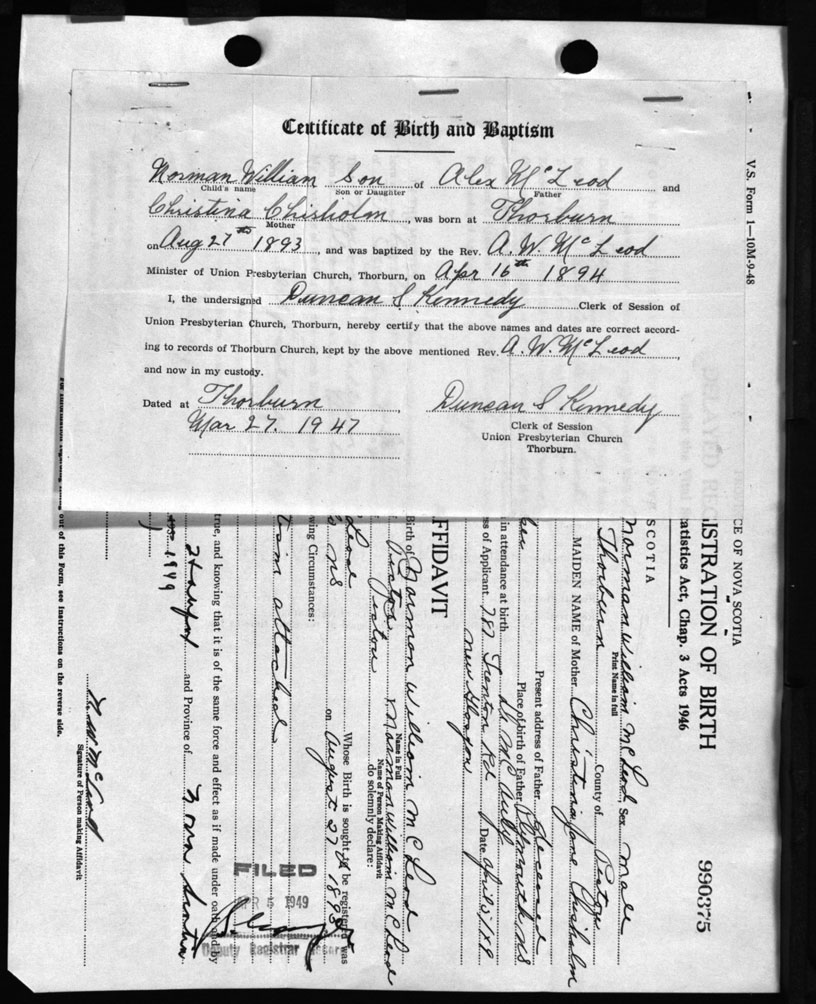 Certificate of Birth and Baptism
Norman William Son of Alex McLeod and
Child's name Son or Daughter Father
Christina Chisholm, was born at Thorburn
Mother
on Aug 27th 1893, and was baptized by the Rev. A. W. McLeod
Minister of Union Presbyterian Church, Thorburn, on Apr 16th 1894
I, the undersigned Duncan S Kennedy Clerk of Session of
Union Presbyterian Church, Thorburn, hereby certify that the above names and dates are correct accord-
ing to records of Thorburn Church, kept by the above mentioned Rev. A. W. McLeod,
and now in my custody.
Dated at Thorburn, Duncan S Kennedy
Mar 27. 1947 Clerk of Session
Union Presbyterian Church
Thorburn.
V.S. Form 1—10M-9-48
CE OF NOVA SCOTIA
ISTRATION OF BIRTH
atistics Act, Chap. 3 Acts 1946
990375
SCOTIA
Norman William McLeod, Sex Male
Print Name in full
Thorburn County of Pictou
MAIDEN NAME of Mother Christina Jane Chisholm
Present address of Father Deceased
Place of birth of Father Plymouth NS
in attendance at birth
ss of Applicant 787 Trenton Rd Date April 5/49
New Glasgow
FFIDAVIT
Birth of Norman William McLeod
Name in Full
Norman William McLeod
Name of Person Making Affidavit
Pictou do solemnly declare:
Whose Birth is sought to be registered was
Leod
NS on August 27th 1893
wing Circumstances:
attached
true, and knowing that it is of the same force and effect as if made under oath and by
and Province of Nova Scotia
1949
N. W. McLeod
Signature of Person making Affidavit
out of this Form, see instructions on the reverse side.
FILED
1949
Deputy Registrar